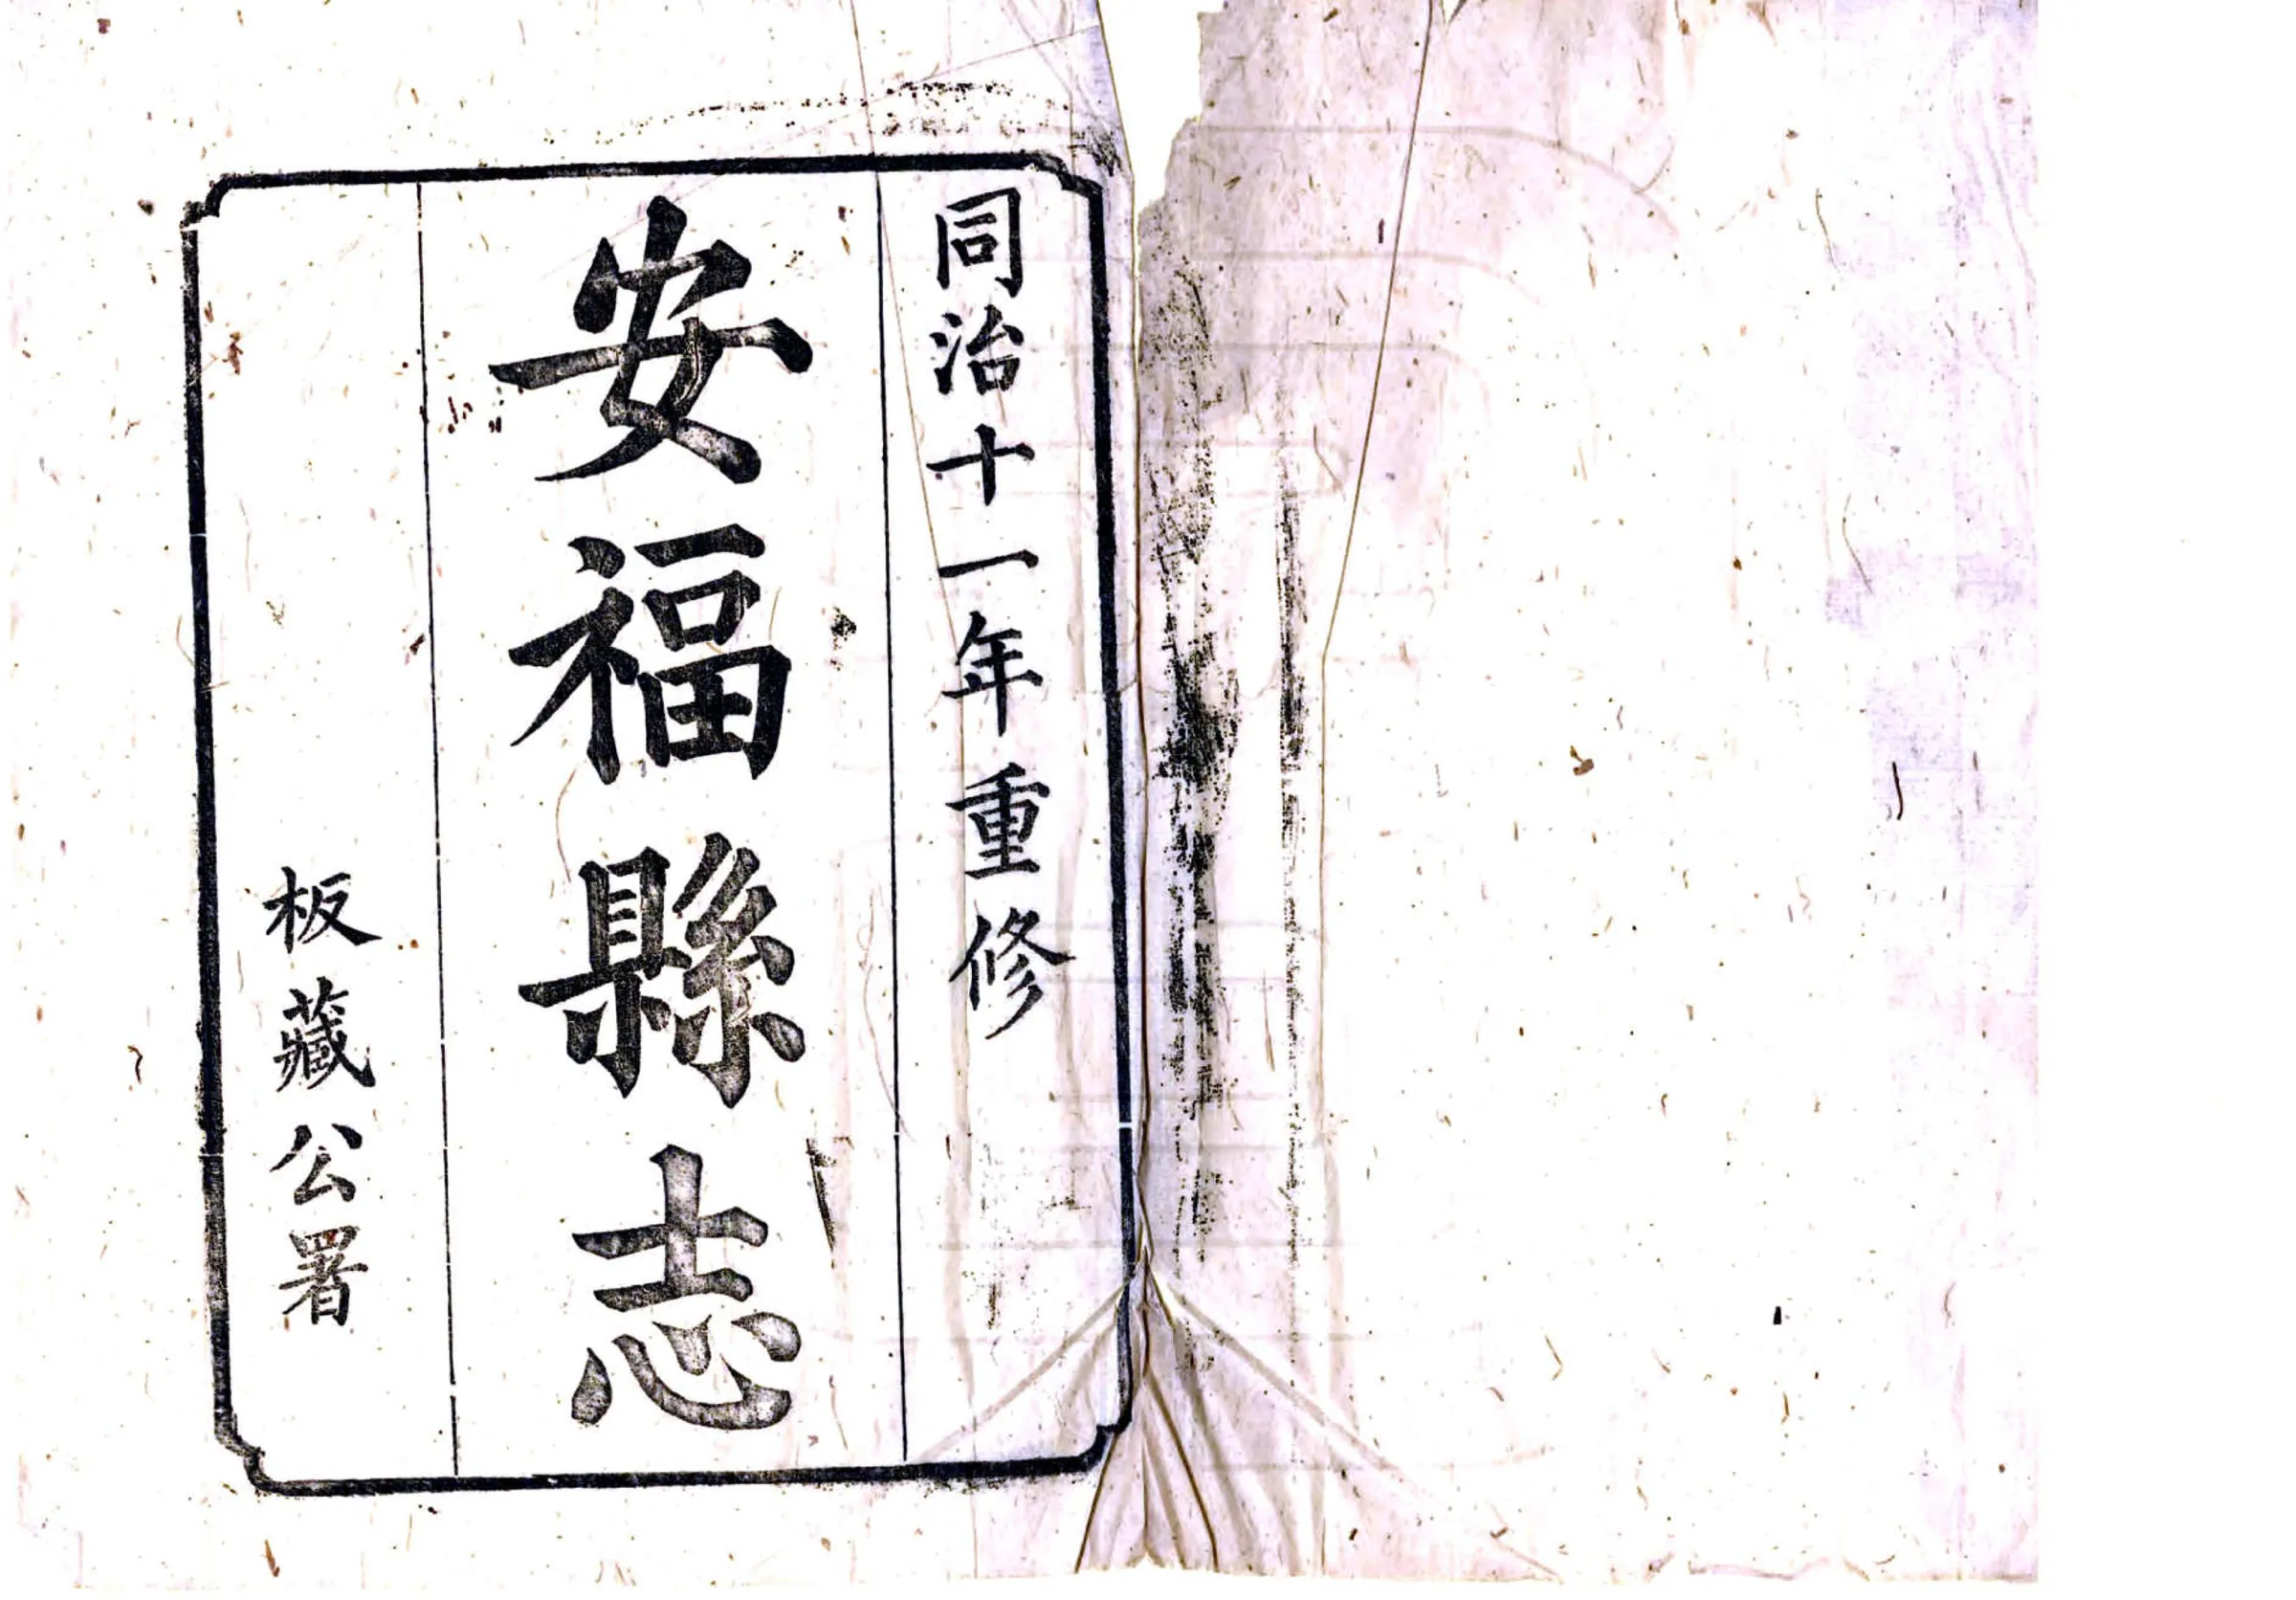 同治十一年重修
安福縣志
板藏公署